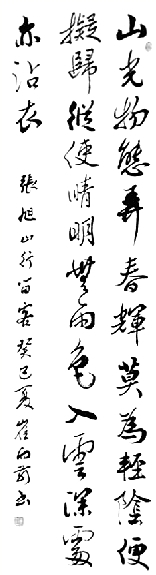 山光物態弄春輝莫為輕陰便
擬歸縱使晴明無雨色入雲深處
亦沾衣
張旭山行留客癸巳夏崔向前書